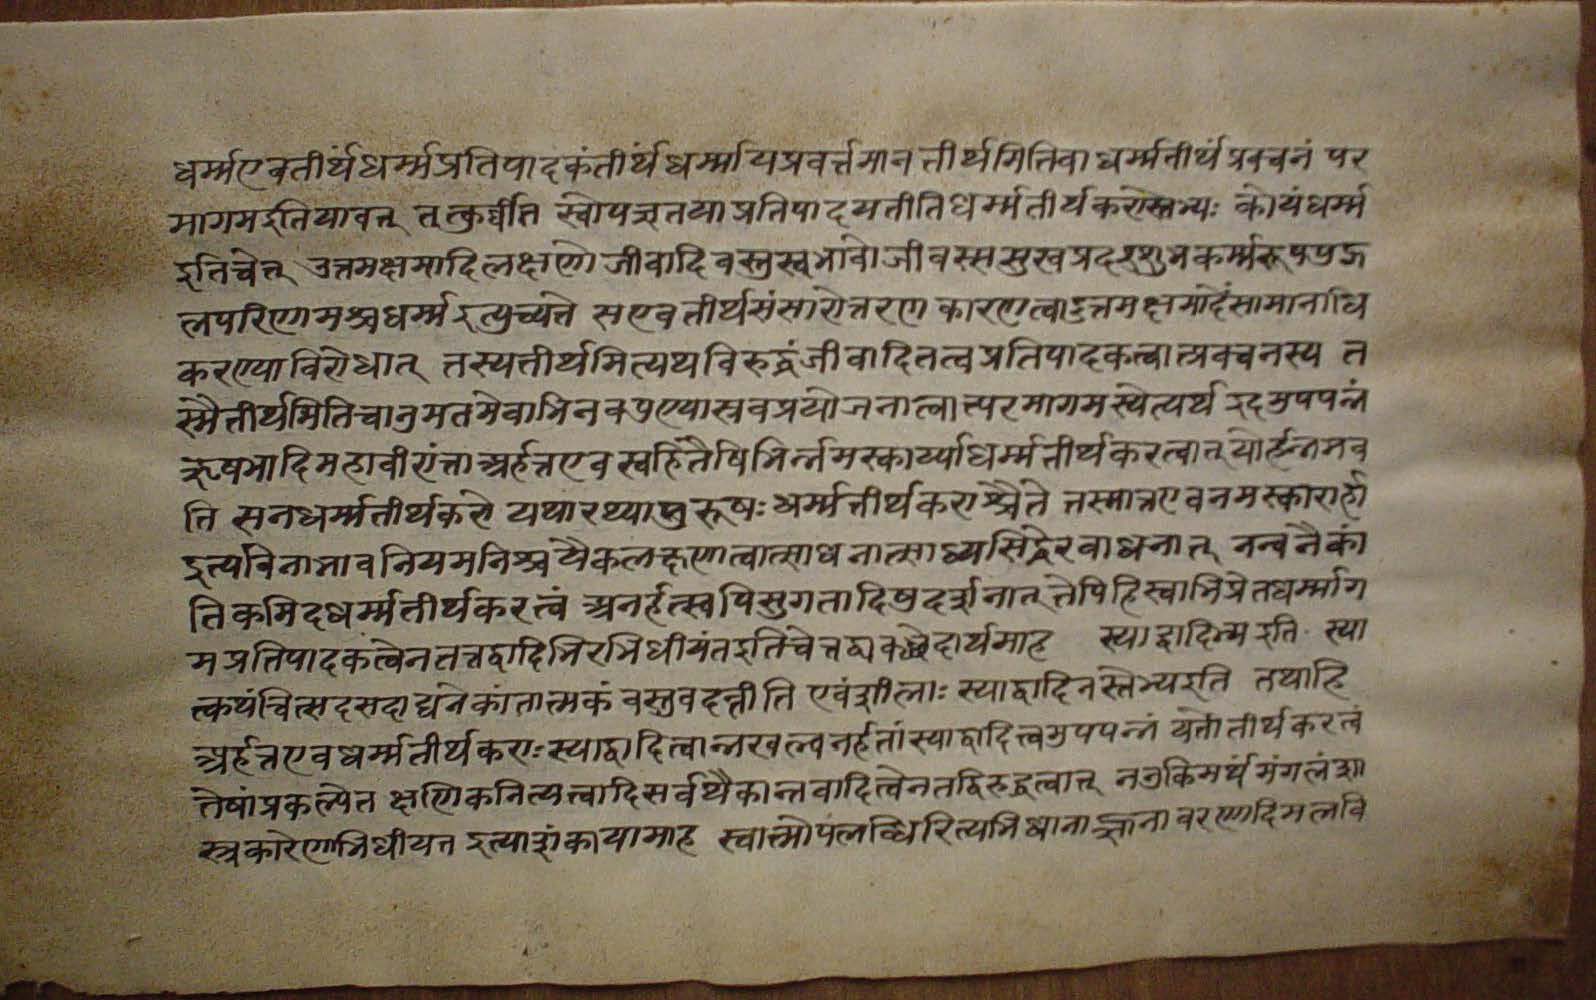 धर्म्मएवतीर्थंधर्म्मप्रतिपादकंतीर्थंधर्म्मायप्रवर्त्तमानतीर्थमितिवाधर्म्मतीर्थंप्रवचनं पर
मागमइतियावत् तत्कुर्वंति स्वोपज्ञतयाप्रतिपादयतीतिधर्म्मतीर्थकरास्तेभ्यः कोयंधर्म्म
इतिचेत् उत्तमक्षमादिलक्षणो जीवादिवस्तुस्वभावोजीवस्ससुखप्रदशुभकर्म्मरूपपुद्ग
लपरिणामश्चधर्म्मइत्युच्यते सएवतीर्थसंसारोत्तरणकारणत्वादुत्तमक्षमादेसामानाधि
करण्याविरोधात् तस्यतीर्थमित्यथविरुद्धंजीवादितत्वप्रतिपादकत्वात्प्रवचनस्य त
स्मैतीर्थमितिचानुमतमेवाभिनवपुण्यास्रवप्रयोजनात्वात्परमागमस्येत्यर्थ इदमुपपन्नं
ऋषभादिमहावीरांत्ताअर्हत्तएवस्वहितैषिभिर्न्नमस्कार्य्याधर्म्मतीर्थकरत्वात् योर्हन्नभव
ति सनधर्म्मतीर्थकरो यथारथ्यापुरूषः धर्म्मतीर्थकराश्चैते तस्मात्तएवनमस्कारार्हा
इत्यविनाभावनियमनिश्चयैकलक्षणत्वात्साधनात्साध्यसिद्धेरबाधनात् नन्वनैकां
तिकमिदधर्म्मतीर्थकरत्वं अनर्हत्स्वपिसुगतादिषुदर्शनात् तेपिहिस्वाभिप्रेतधर्म्माग
मप्रतिपादकत्वेनतत्तद्वादिभिरभिधीयंतइतिचेत्तद्व्यवच्छेदार्थमाह स्याद्वादिभ्यइति स्या
त्कथंचित्सदसदाद्यनेकांतात्मकं वस्तुवदन्तीति एवंशीलाः स्याद्वादिनस्तेभ्यइति तथाहि
अर्हत्तएवधर्म्मतीर्थकराः स्याद्वादित्वान्नखल्वनर्हतांस्याद्वादित्वमुपपन्नं येतोतीर्थकरत्वं
तेषांप्रकल्पेत क्षणिकनित्यत्वादिसर्वथैकान्तवादित्वेनतद्विरुद्धत्वात् ननुकिमर्थंमंगलंशा
स्त्रकारेणाभिधीयत इत्याशंकायामाह स्वात्मोपलब्धिरित्यभिधानाज्ज्ञानावरणादिमलवि